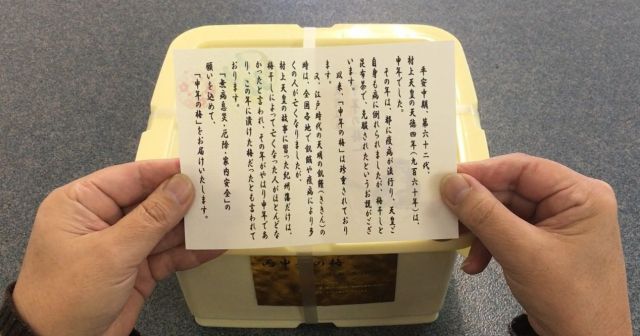 平安中期、第六十二代、
村上天皇の天徳四年（九百六十年）は、
申年でした。
その年は、都に疫病が流行り、天皇ご
自身も病に倒れられましたが、梅干しと
昆布茶で、克服されたという説がござ
います。
以来、「申年の梅」は珍重されており
ます。
又、江戸時代の天明の飢饉（ききん）の
時は、全国各地で飢餓や疫病により多
くの人が亡くなりましたが、
村上天皇の故事に習った紀州藩だけは、
梅干しによって亡くなった人がほとんどな
かったと言われ、その年がやはり申年であ
り、この年に漬けた梅だったとも言われて
おります。
「無病息災・厄除・家内安全」の
願いを込めて、
「申年の梅」をお届けいたします。
丙申 の梅